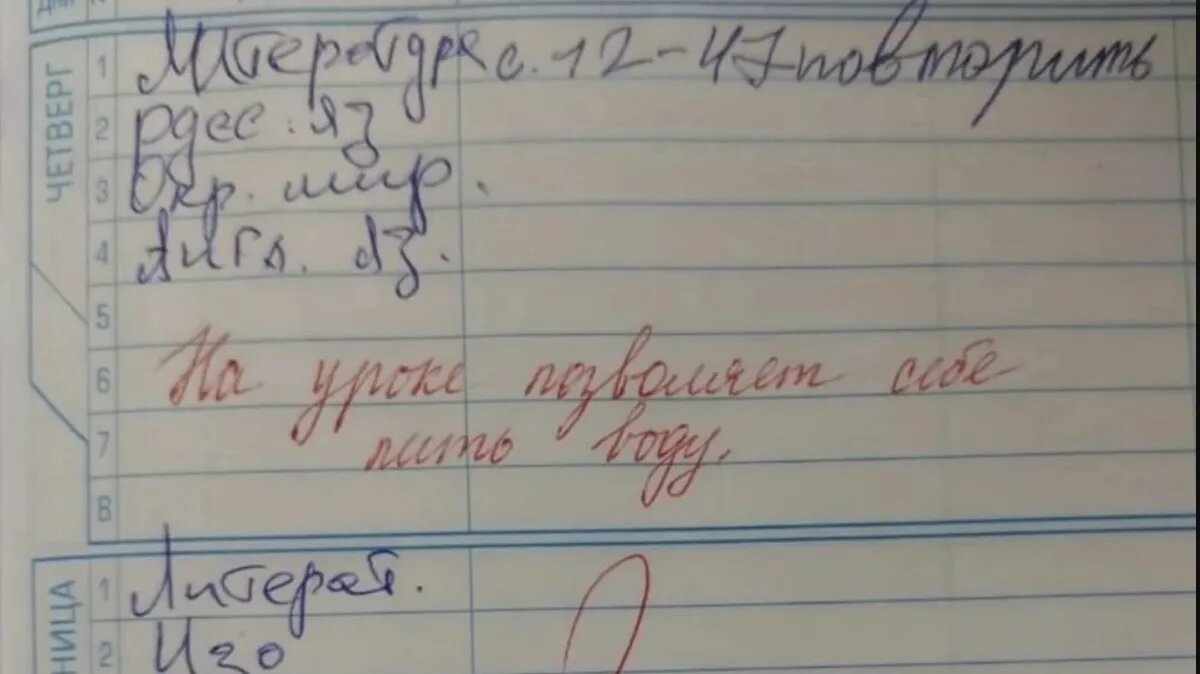 ЧЕТВЕРГ
1 Литература с. 12-47 повторить
2 Русс. яз
3 Окр. мир.
4 Англ. яз.
5
6 На уроке позволяет себе
7 пить воду.
8
НИЦА
1 Литерат.
2 Изо